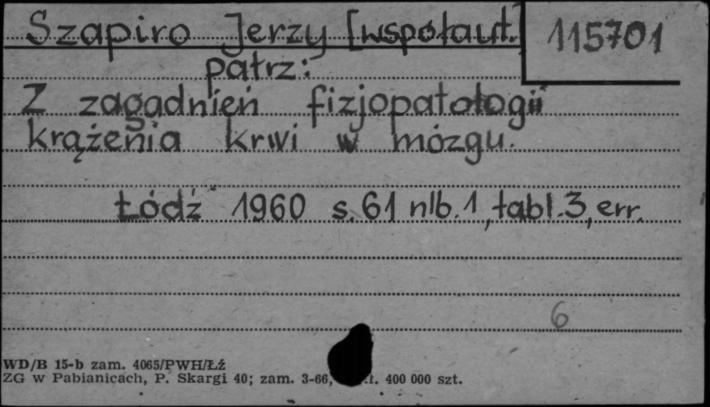 Szapiro Jerzy [współaut.]
115701
patrz:
Z zagadnień fizjopatologii
krążenia krwi w mózgu.
Łódź 1960 s. 61 nlb. 1, tabl. 3, err.
6
WD/B 15-b zam. 4065/PWH/Łż
ZG w Pabianicach, P. Skargi 40; zam. 3-66, 400 000 szt.